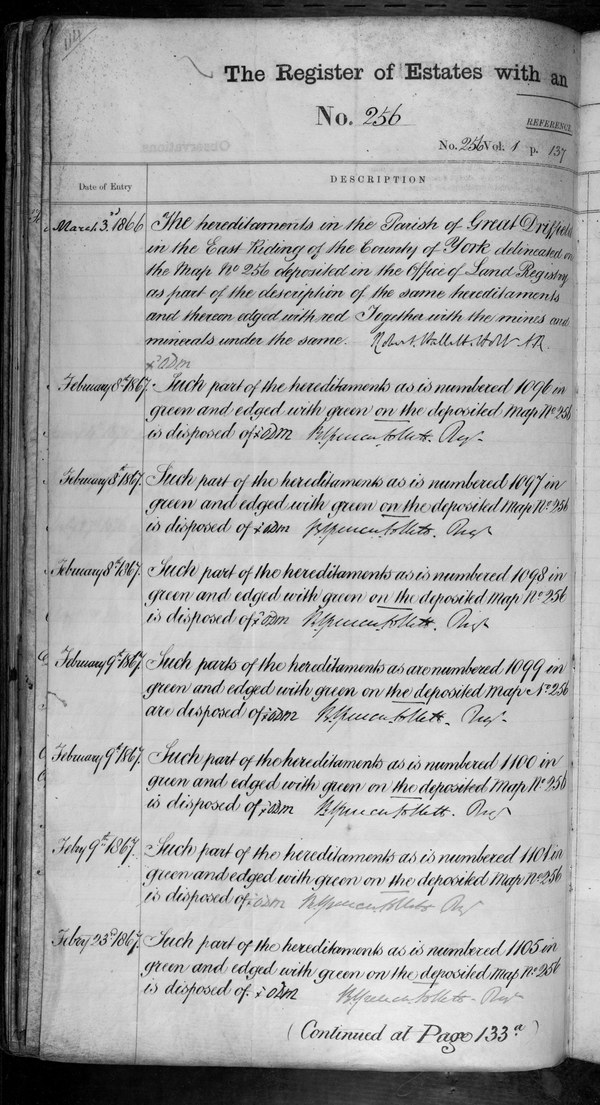 The Register of Estates with an
No. 256
REFERENCE
No. 256 Vol. 1 p. 137
Date of Entry
DESCRIPTION
March 3rd 1866
The hereditaments in the Parish of Great Driffield
in the East Riding of the County of York delineated on
the Map No 256 deposited in the Office of Land Registry
as part of the description of the same hereditaments
and thereon edged with red Together with the mines and
minerals under the same.
February 8th 1867. Such part of the hereditaments as is numbered 1096 in
green and edged with green on the deposited Map No 256
is disposed of
February 8th 1867. Such part of the hereditaments as is numbered 1097 in
green and edged with green on the deposited Map No 256
is disposed of
February 8th 1867. Such part of the hereditaments as is numbered 1098 in
green and edged with green on the deposited Map No 256
is disposed of
February 9th 1867. Such parts of the hereditaments as are numbered 1099 in
green and edged with green on the deposited Map No 256
are disposed of
February 9th 1867. Such part of the hereditaments as is numbered 1100 in
green and edged with green on the deposited Map No 256
is disposed of
Febry 9th 1867. Such part of the hereditaments as is numbered 1101 in
green and edged with green on the deposited Map No 256
is disposed of
Febry 23rd 1867. Such part of the hereditaments as is numbered 1105 in
green and edged with green on the deposited Map No 256
is disposed of.
(Continued at Page 133a)